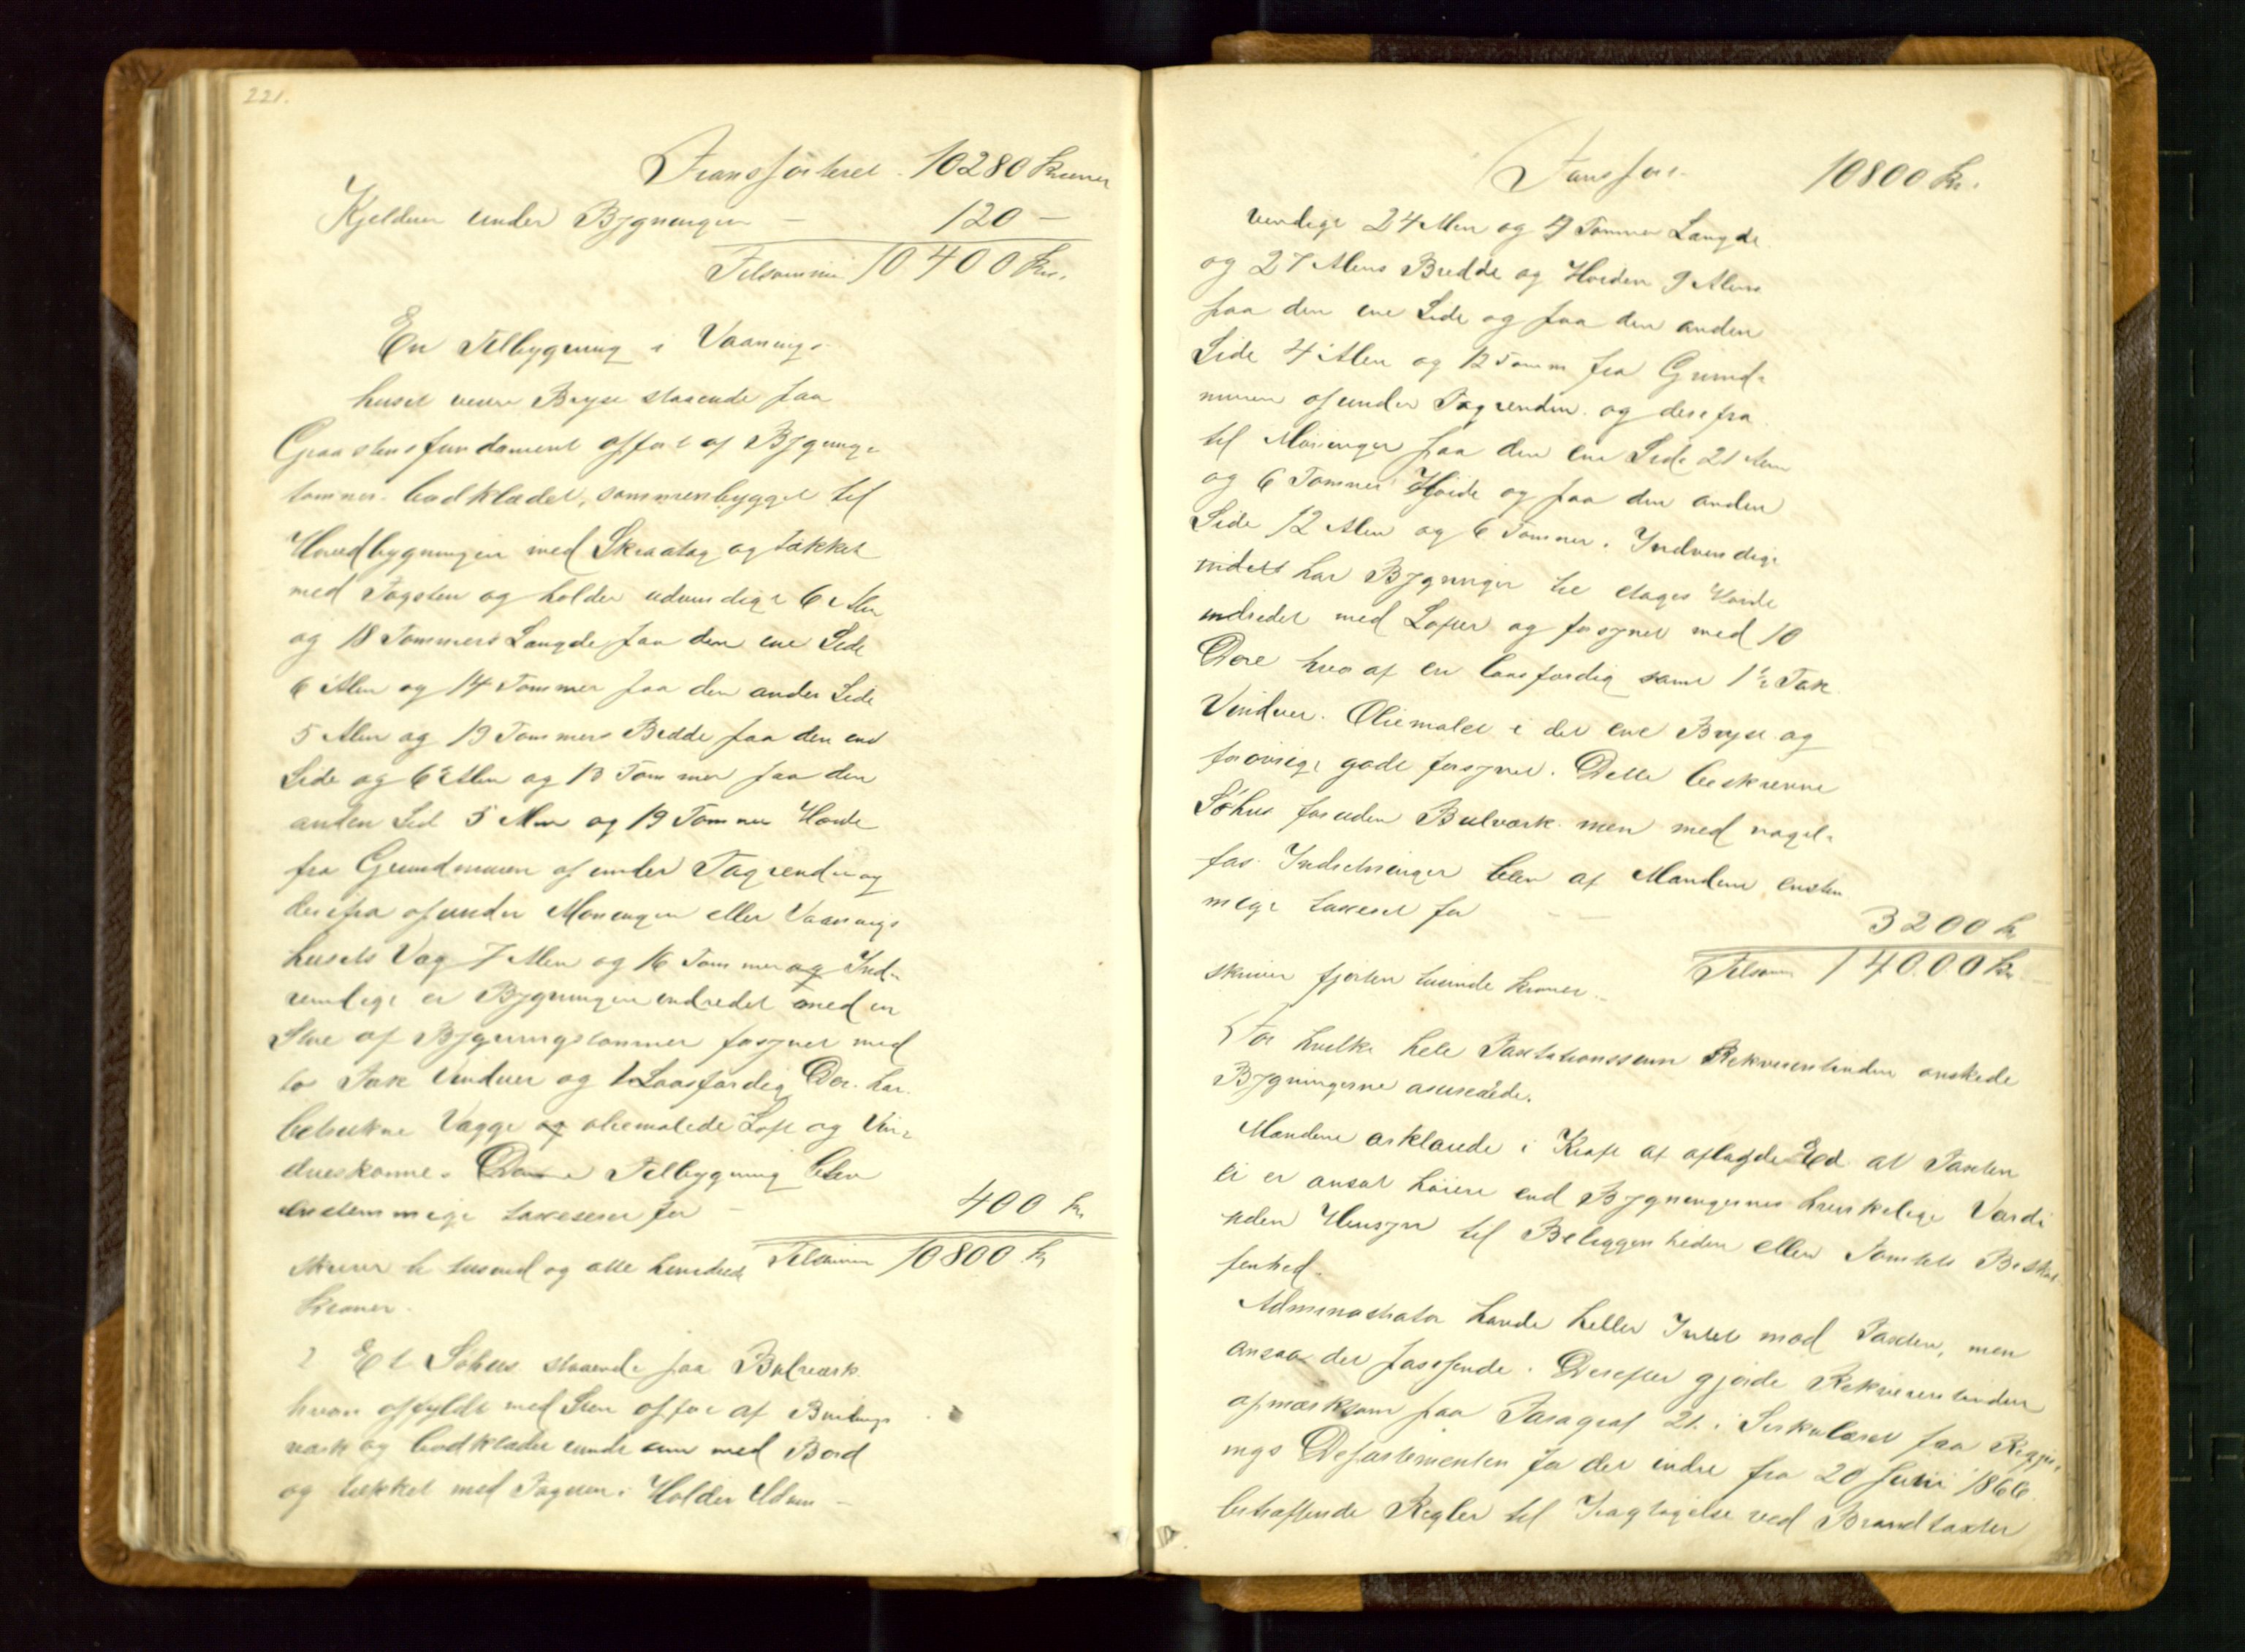 221.
Transporteret 10280 Kroner
Kjelder under Bygningen — 120 —
Tilsammen 10400 Kr.
En Tilbygning i Vaanings
huset venne Bryse staaende paa
Graastensfundament opført af Bygnings
tømmer. bordklædet, sammenbygget til
Hovedbygningen med Skraatag og tækket
med Tagsten og holder udvendige 6 Alen
og 18 Tommers Længde paa den ene Side
6 Alen og 14 Tommer paa den anden Side
5 Alen og 19 Tommers Bredde paa den ene
Side og 6 Alen og 13 Tommer paa den
anden Side 5 Alen og 19 Tommer Høide
fra Grundmuren op under Tagrenden og
derifra op under Møningen eller Vaanings
husets Væg 7 Alen og 16 Tommer og Ind-
vendige er Bygningen indredet med en
Stue af Bygningstømmer forsynet med
to Fak Vinduer og 1 Laasfærdig Dør. har
betrukne Vægge og oliemalede Loft og Vin-
dueskarme. Denne Tilbygning blev
enstemmige taxeret for — 400 Kr
skriver ti tusend og otte hundrede Tilsammen 10800 Kr
Kroner.
2 Et Søhus staaende paa Bulværk
hvori opfyldt med Sten opført af Bindings
værk og bordklædet rundt om med Bord
og tækket med Tagsten. Holder Udven-
Transport 10800 Kr.
vendige 24 Alen og 9 Tommer Længde
og 27 Alens Bredde og Høiden 9 Alens
paa den ene Side og paa den anden
Side 4 Alen og 12 Tomm fra Grund-
muren op under Tagrenden og derifra
til Møningen paa den ene Side 21 Alen
og 6 Tommer Høide og paa den anden
Side 12 Alen og 6 Tommer. Indvendige
har Bygningen tre etages Høide
indredet med Lofter og forsynet med 10
Døre hvoraf en laasfærdig samt 1½ Fak
Vinduer. Oliemalet i det ene Bryse og
forøvrige godt forsynet. Dette beskrevne
Søhus foruden Bulværk men med nagel-
fas Indretninger blev af Mændene enstem
mige taxeret for — 3200 Kr
Tilsam 14000 Kr.
skriver fjorten tusinde Kroner.
For hvilke hele Taxtationssum Rekvirentinden ønskede
Bygningerne asurerede.
Mændene erklærede i Kraft af aflagde Ed at Taxten
ei er ansat høiere end Bygningernes Værdi
uden Hensyn til Beliggenheden eller Tomtets Beskaf
fenhed.
Administrator havde heller Intet mod Taxten, men
ansaa det passende. Derefter gjorde Rekvirentinden
opmærksom paa Paragraf 21 i Sirkulæret fra Regjer
ings Departementen for det indre fra 20 Juni 1866
betræffende Regler til Iagtagelse ved Brandtaxter